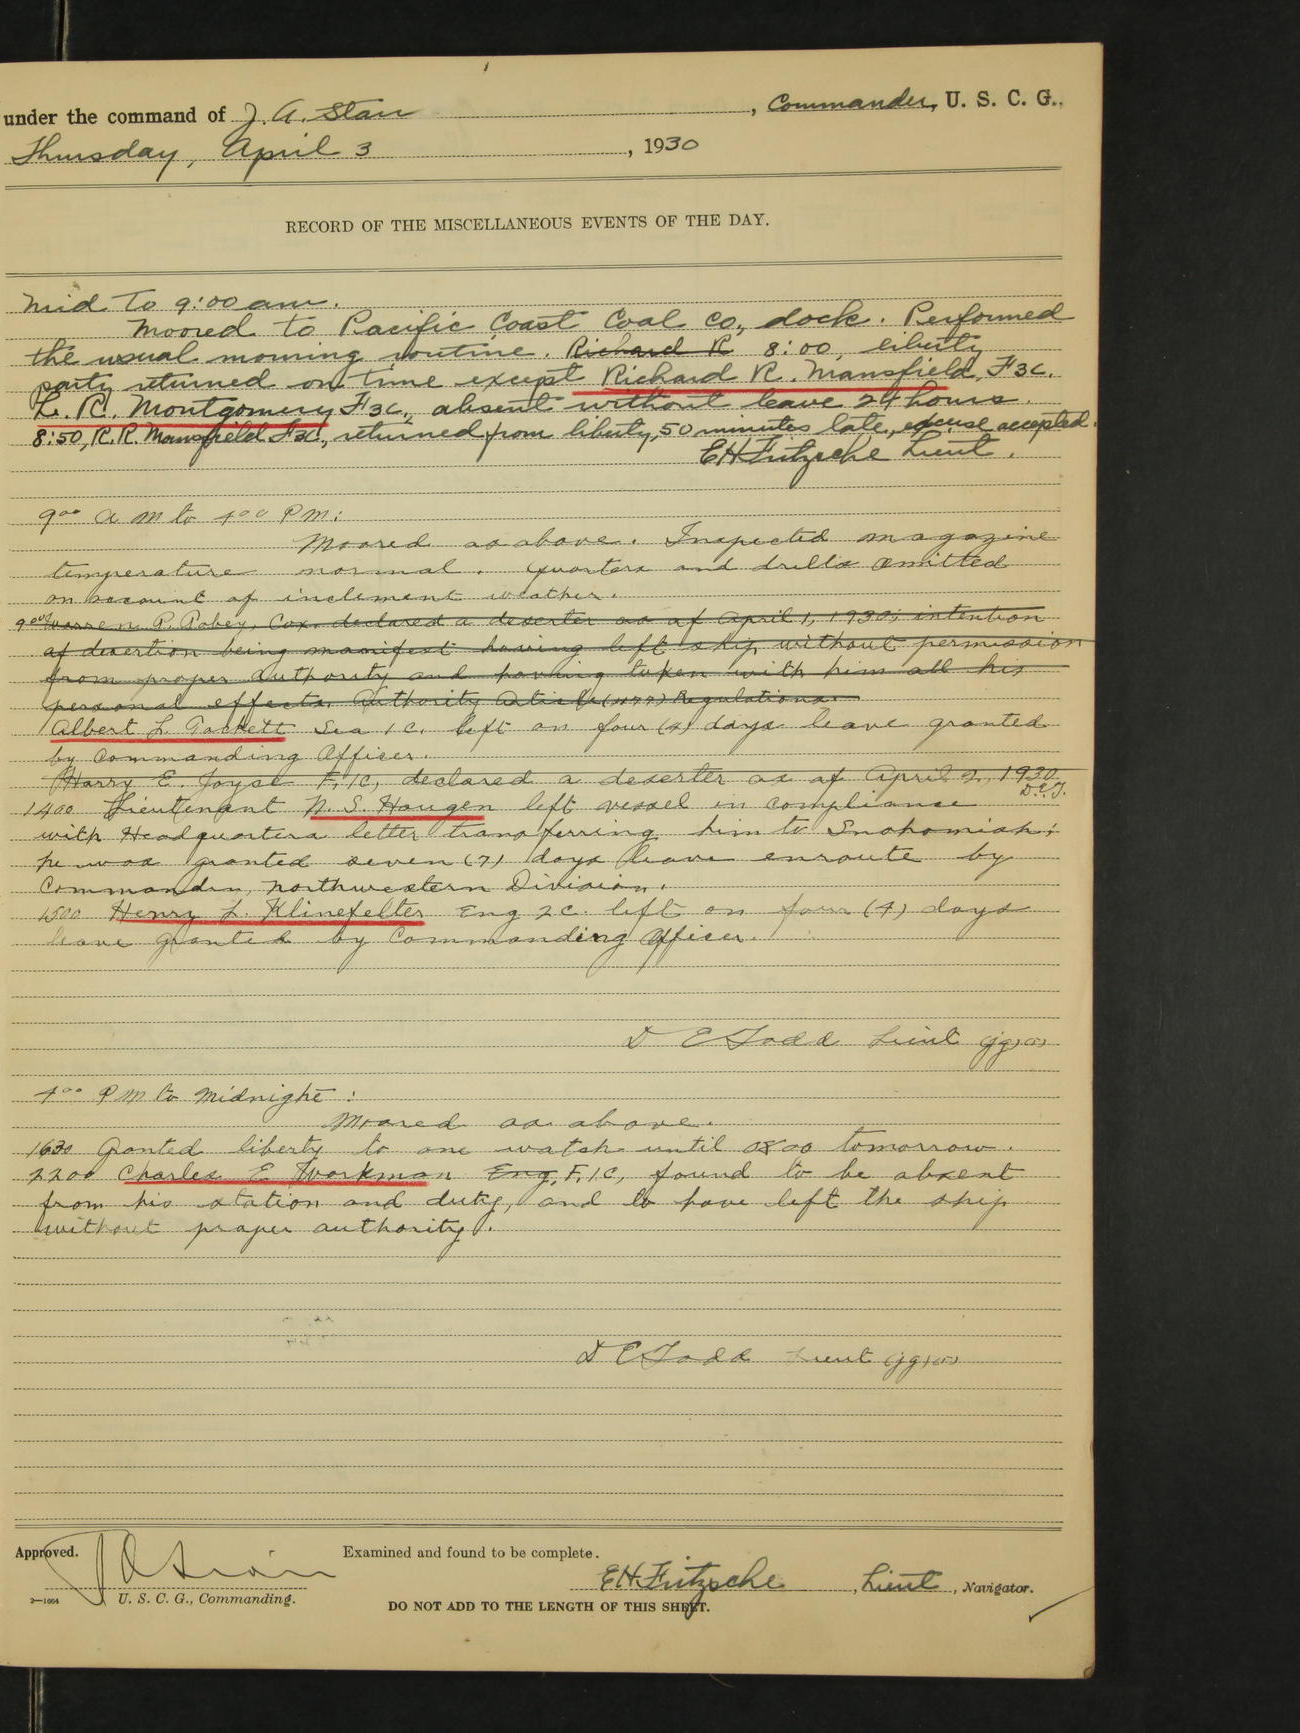 under the command of J. A. Starr, Commander, U. S. C. G.,
Thursday, April 3, 1930
RECORD OF THE MISCELLANEOUS EVENTS OF THE DAY.
Mid To 9:00 am.
Moored to Pacific Coast Coal Co., dock. Performed
the usual morning routine. Richard R 8:00, liberty
party returned on time except Richard R. Mansfield, F3c.
L. R. Montgomery F3c, absent without leave 24 hours.
8:50, R.R. Mansfield F3c, returned from liberty, 50 minutes late, excuse accepted.
E H Fritzsche Lieut.
9 00 A M to 4 00 P M:
Moored as above. Inspected magazine
temperature normal. Quarters and drills omitted
on account of inclement weather.
9 00 Warren P. Pabey, Cox. declared a deserter as of April 1, 1930; intention
of desertion being manifest having left ship without permission
from proper authority and having taken with him all his
personal effects. Authority Article (1177) Regulations.
Albert L. Tackett Sea 1c. left on four (4) days leave granted
by Commanding Officer.
Harry E. Joyse F, 1C, declared a deserter as of April 2, 1930
D.E.T.
1400 Lieutenant N. S. Haugen left vessel in compliance
with Headquarters letter transferring him to Snohomish;
he was granted seven (7) days leave enroute by
Commander, Northwestern Division.
1500 Henry L. Klinefelter Eng 2c. left on four (4) days
leave granted by Commanding Officer.
D E Todd Lieut (jg)(T)
4 00 P M to Midnight:
Moored as above.
1630 Granted liberty to one watch until 0800 tomorrow.
2200 Charles E Workman Eng, F, 1C, found to be absent
from his station and duty, and to have left the ship
without proper authority.
D E Todd Lieut (jg)(T)
Approved. Examined and found to be complete.
E H Fritzsche, Lieut, Navigator.
2—1664 U. S. C. G., Commanding.
DO NOT ADD TO THE LENGTH OF THIS SHEET.